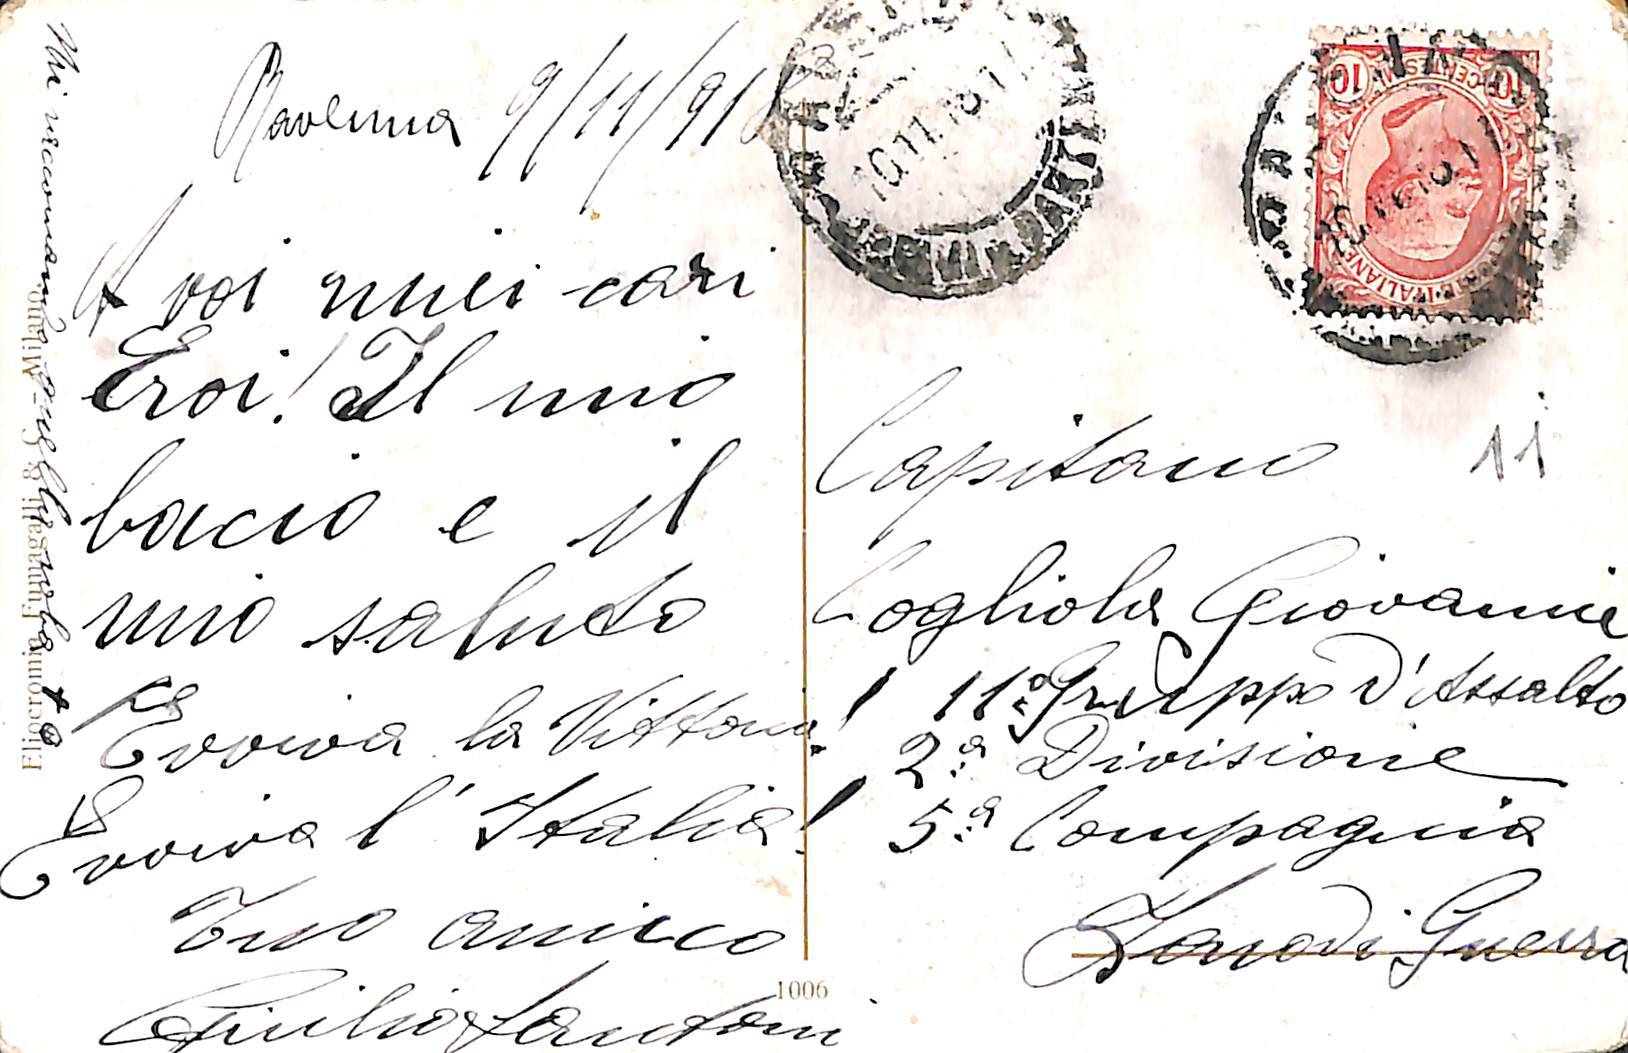 Ravenna 9/11/918
A voi miei cari
Eroi! Il mio
bacio e il
mio saluto
Evviva la Vittoria!
Evviva l'Italia!
Tuo amico
Giulio Santoni
Mi raccomando quella roba
Eliocromia Fumagalli & C. - Milano.
1006
10 CENTESIMI 10
POSTE ITALIANE
10.11.18
11
Capitano
Cogliola Giovanni
11º Gruppo d'Assalto
2ª Divisione
5ª Compagnia
Zona di Guerra